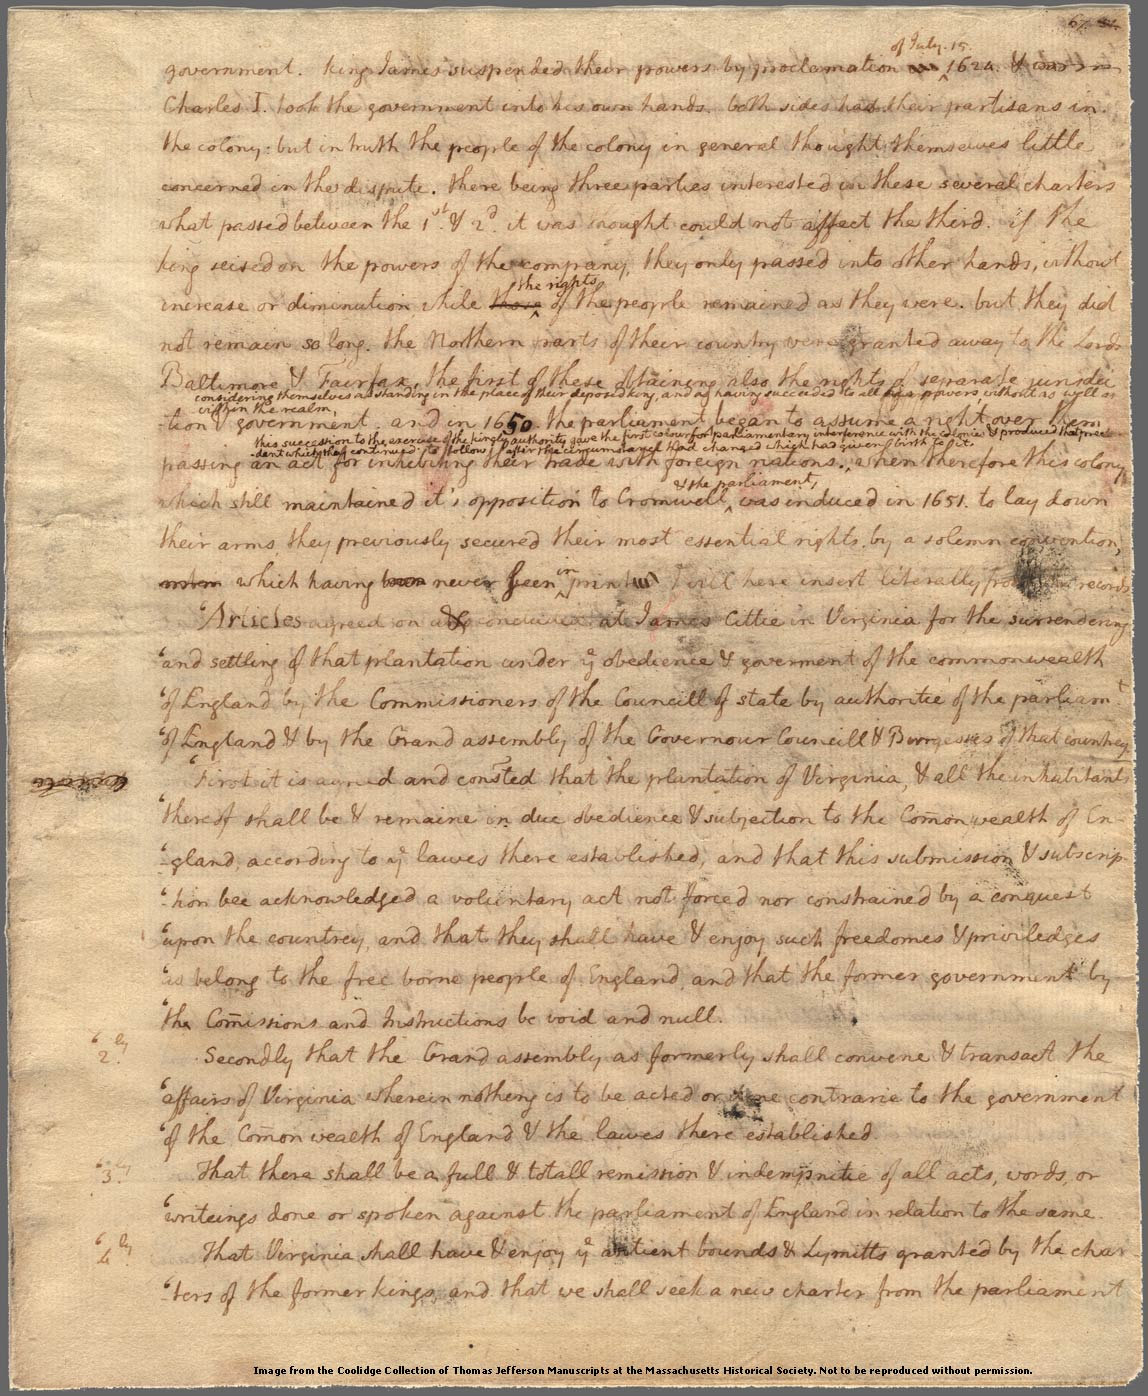 67.
of July. 15.
government. king James suspended their powers by proclamation 1624. &
Charles I. took the government into his own hands. both sides had their partisans in
the colony: but in truth the people of the colony in general thought themselves little
concerned in the dispute. there being three parties interested in these several charters
what passed between the 1st. & 2d. it was thought could not affect the third. if the
king seised on the powers of the company, they only passed into other hands, without
the rights
increase or diminution, while those of the people remained as they were. but they did
not remain so long. the Northern parts of their country were granted away to the Lords
Baltimore & Fairfax, the first of these obtaining also the rights of separate jurisdic
considering themselves as standing in the place of their deposed king, and as having succeeded to all his powers, without as well as
within the realm,
-tion & government. and in 1650. the parliament began to assume a right over them
this succession to the exercise of the kingly authority gave the first colour for parliamentary interference with the colonies, & produced that prece
-dent which they continued to follow after the circumstances had changed which had given birth to it.
passing an act for inhibiting their trade with foreign nations. when therefore this colony,
& the parliament,
which still maintained it's opposition to Cromwell, was induced in 1651. to lay down
their arms, they previously secured their most essential rights, by a solemn convention,
in
which having never been print I will here insert literally from records
'Articles agreed on & concluded at James Cittie in Virginia for the surrendering
'and settling of that plantation under ye obedience & goverment of the commonwealth
'of England by the Commissioners of the Councill of state by authoritie of the parliamt.
'of England & by the Grand assembly of the Governour Councill & Burgesses of that countrey
'First it is agreed and consted that the plantation of Virginia, & all the inhabitants
'thereof shall be & remaine in due obedience & subjection to the Com̄on wealth of En-
'-gland, according to ye lawes there established, and that this submission & subscrip-
'-tion bee acknowledged a voluntary act not forced nor constrained by a conquest
'upon the countrey, and that they shall have & enjoy such freedomes & priviledges
'as belong to the free borne people of England, and that the former government by
'the Com̄issions and Instructions be void and null.
'2ly. Secondly that the Grand assembly as formerly shall convene & transact the
'affairs of Virginia wherein nothing is to be acted or done contrarie to the government
'of the Com̄on wealth of England & the lawes there established.
'3ly. That there shall be a full & totall remission & indempnitie of all acts, words, or
'writeings done or spoken against the parliament of England in relation to the same.
'4ly. That Virginia shall have & enjoy ye antient bounds & Lymitts granted by the char-
'-ters of the former kings, and that we shall seek a new charter from the parliament
Image from the Coolidge Collection of Thomas Jefferson Manuscripts at the Massachusetts Historical Society. Not to be reproduced without permission.